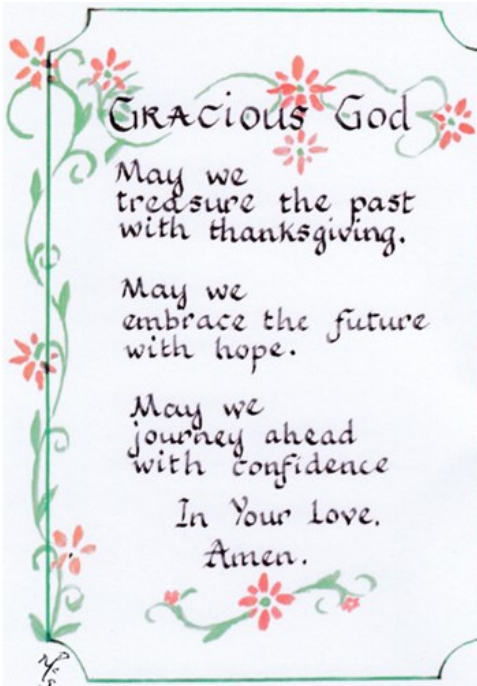 Gracious God
May we
treasure the past
with thanksgiving.
May we
embrace the future
with hope.
May we
journey ahead
with confidence
In Your Love.
Amen.